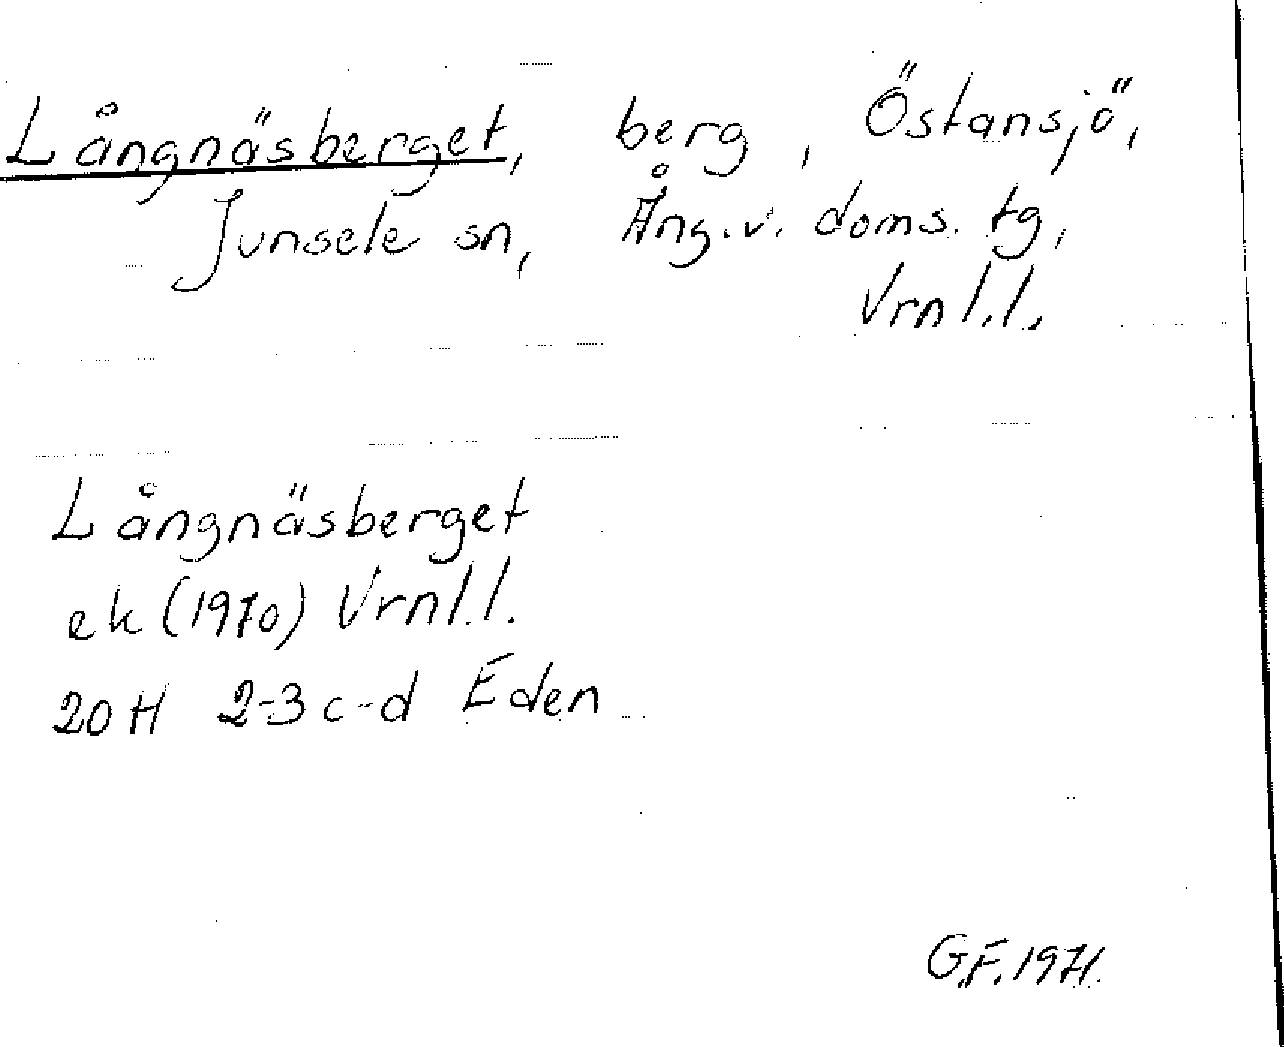 Långnäsberget, berg, Östansjö,
Junsele sn, Ång.v. doms. tg,
Vrnl.l.
Långnäsberget
ek (1970) Vrnl.l.
20H 2-3 c-d Eden
G.F. 1971.